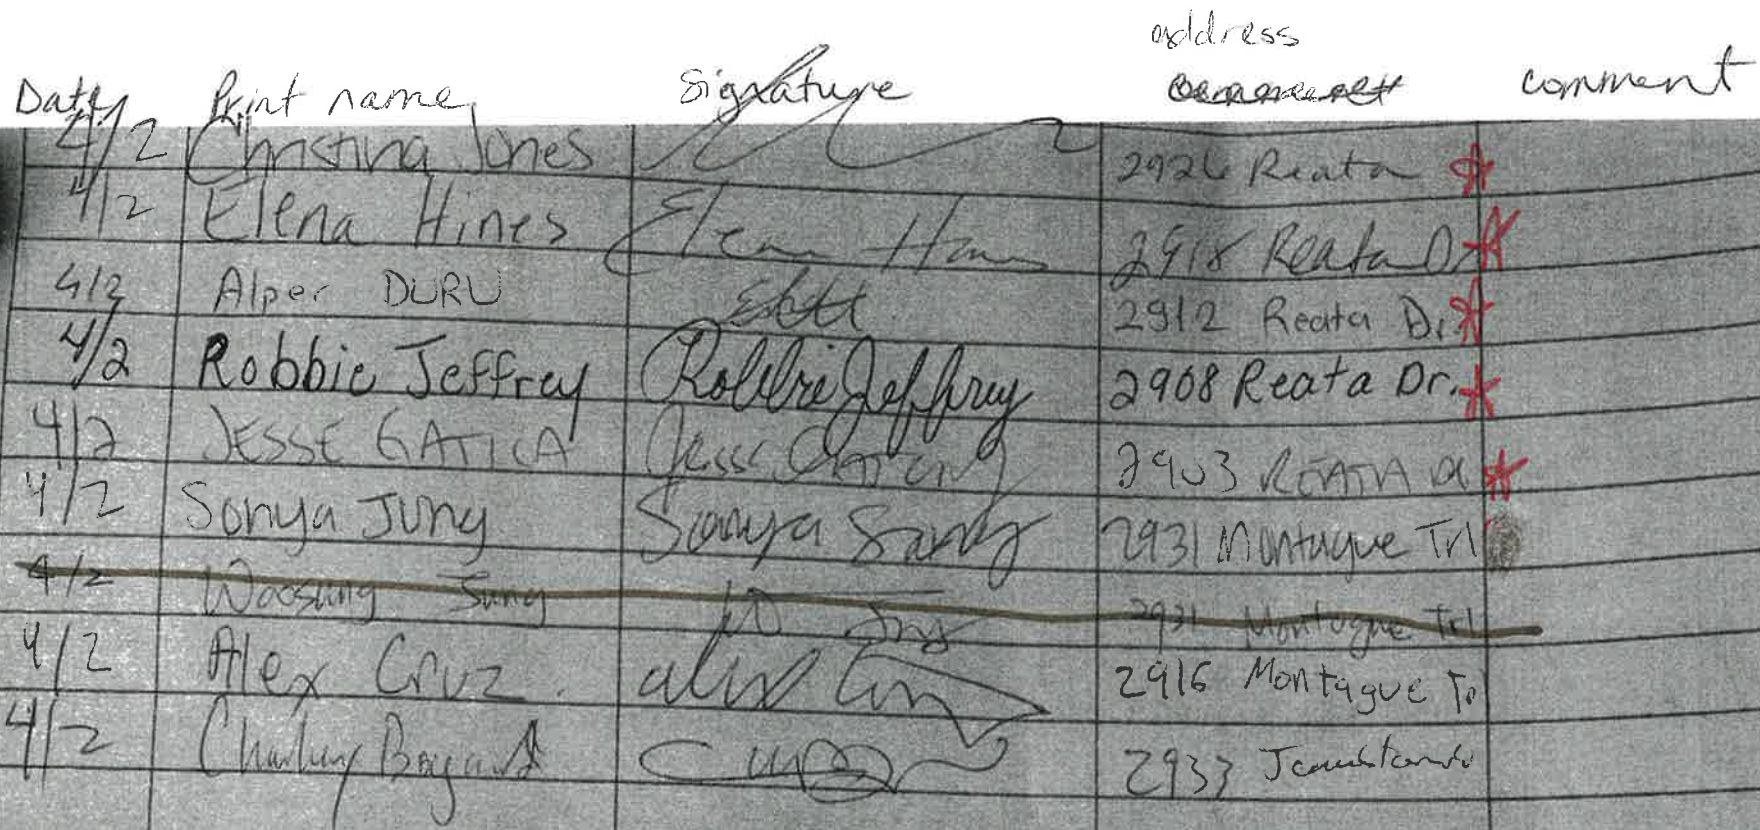 address
Date Print name Signature comment
4/2 Christina Jones 2926 Reata
4/2 Elena Hines Elena Hines 2918 Reata Dr
4/2 Alper DURU 2912 Reata Dr.
4/2 Robbie Jeffrey Robbie Jeffrey 2908 Reata Dr.
4/2 JESSE GATICA Jesse Gatica 2903 REATA
4/2 Sonya Jung Sonya Jung 2931 Montague Trl
4/2 Woosung Jung W Jung 2931 Montague Trl
4/2 Alex Cruz. Alex Cruz 2916 Montague Tr
4/2 2933